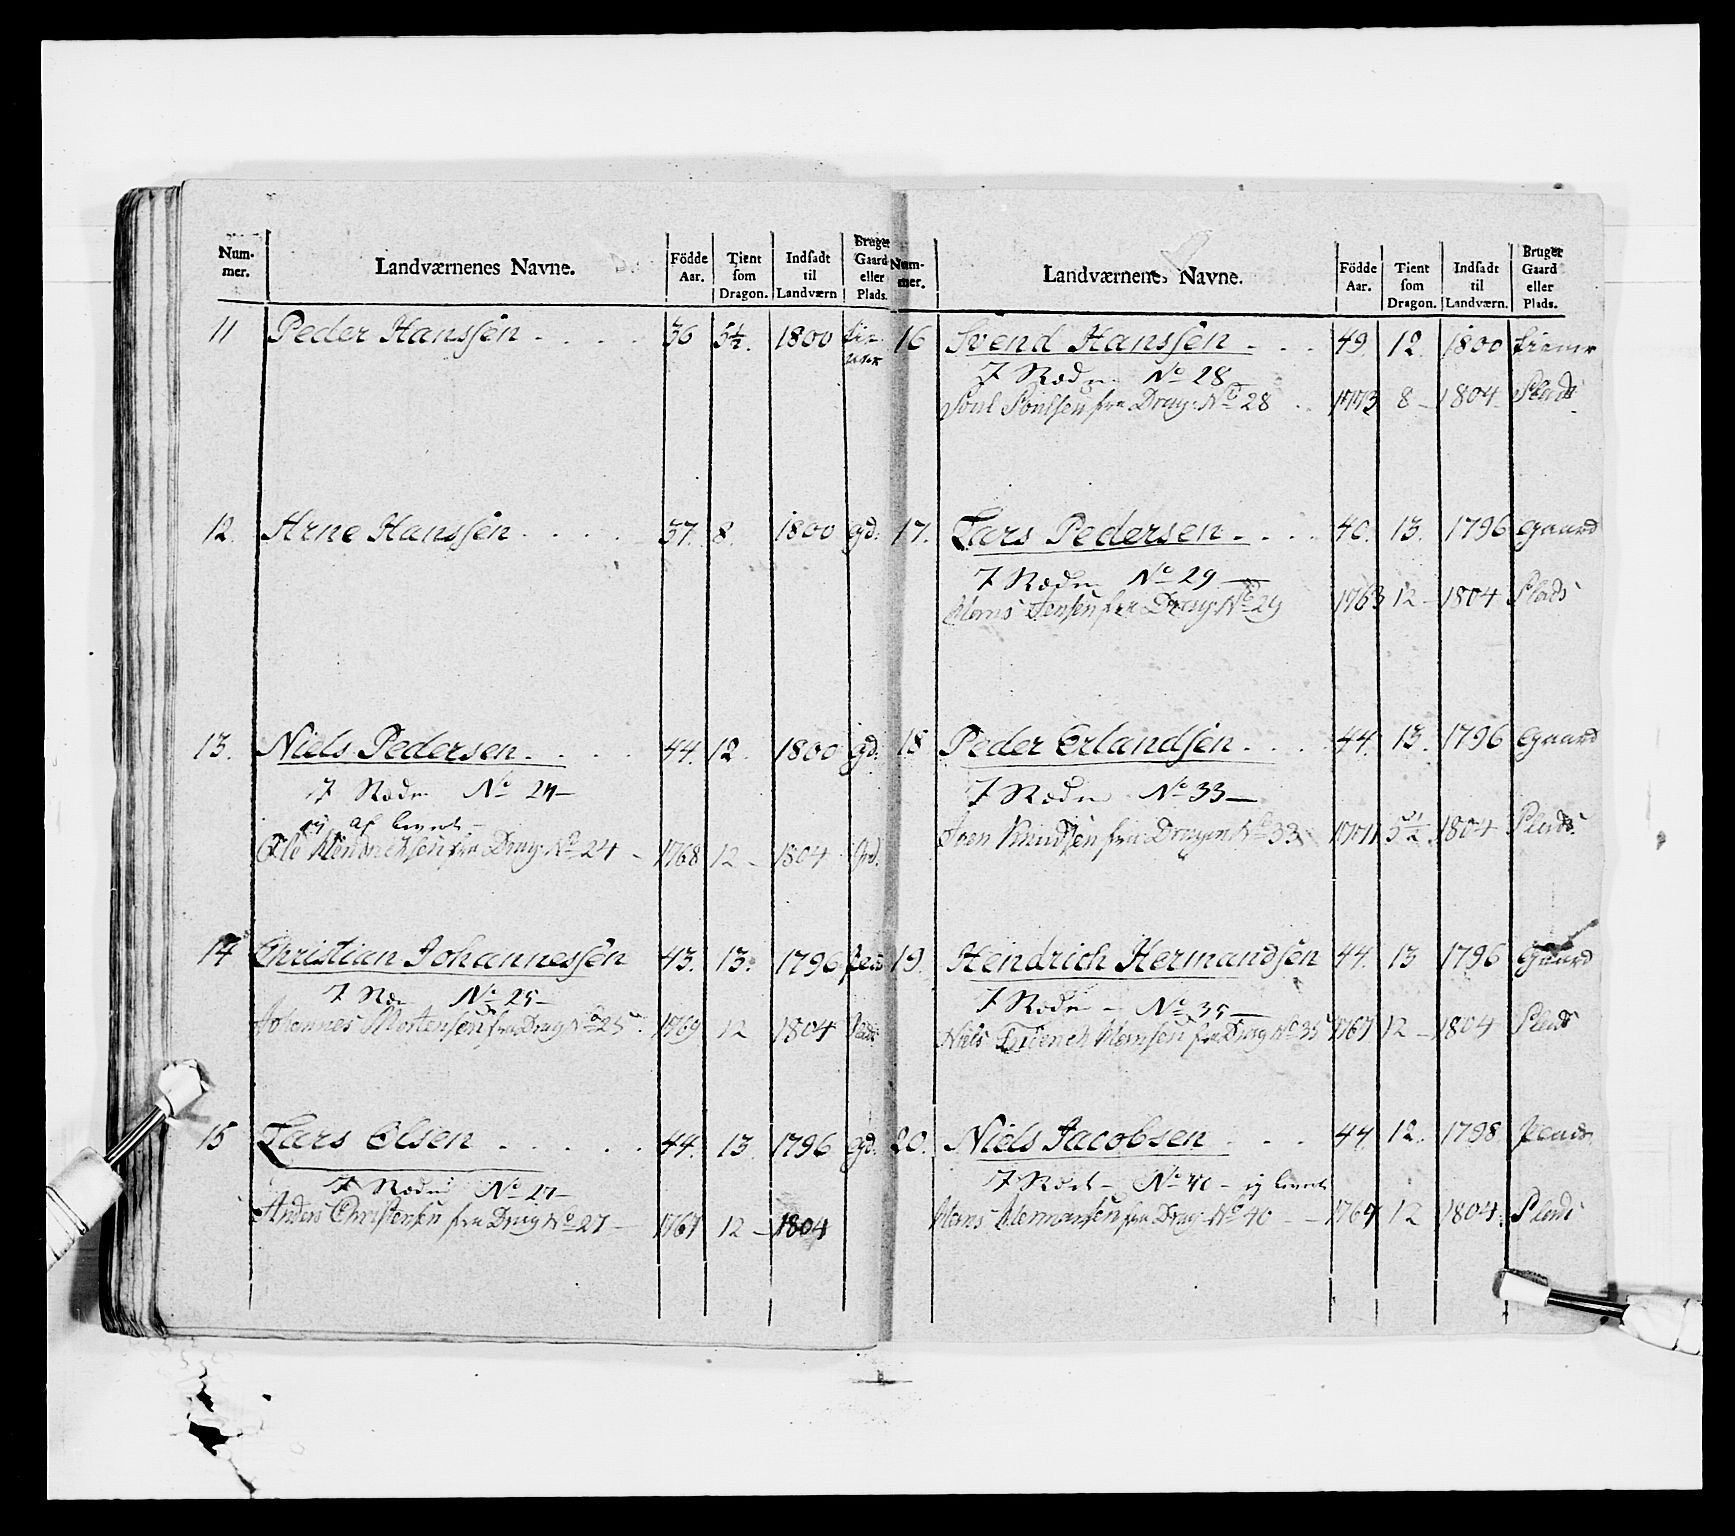 Num-
mer. Landværnenes Navne. Födde Aar. Tient som Dragon. Indsadt til Landværn Bruger Gaard eller Plads.
11 Peder Hanssen 36 5½. 1800 tie-
ner
12. Arne Hanssen 37. 8. 1800 gd.
13. Niels Pedersen 44. 12. 1800 gd.
No 24
fra Drag. No 24 1768 12 1804 Grd.
14 Christian Johannessen 43. 13. 1796
No 25
Johannes Mortensen fra Drag No 25 1769 12 1804
15 Lars Olsen 44. 13 1796 gd.
No 27
Anders Christensen fra Drag No 27 1767 12 1804
Num-
mer. Landværnenes Navne. Födde Aar. Tient som Dragon. Indsadt til Landværn. Bruger Gaard eller Plads.
16 Svend Hanssen 49. 12. 1800 tiener
No 28
fra Drag. No 28 1773 8 1804 Plads
17. Lars Pedersen 40. 13. 1796 Gaard
No 29
Hans Jensen fra Drag. No 29 1763 12 1804 Plads
18 Peder Erlandsen 44. 13. 1796 Gaard
No 33
Knudsen fra Dragon No 33 5½ 1804 Plads
19. Hendrich Hermandsen 44. 13 1796 Gaard
No 35
Niels Hansen fra Drag No 35 1767 12 1804 Plads
20. Niels Jacobsen 44 12. 1798 Plads
No 40
Hans Hermansen fra Drag. No 40 1767 12 1804. Plads